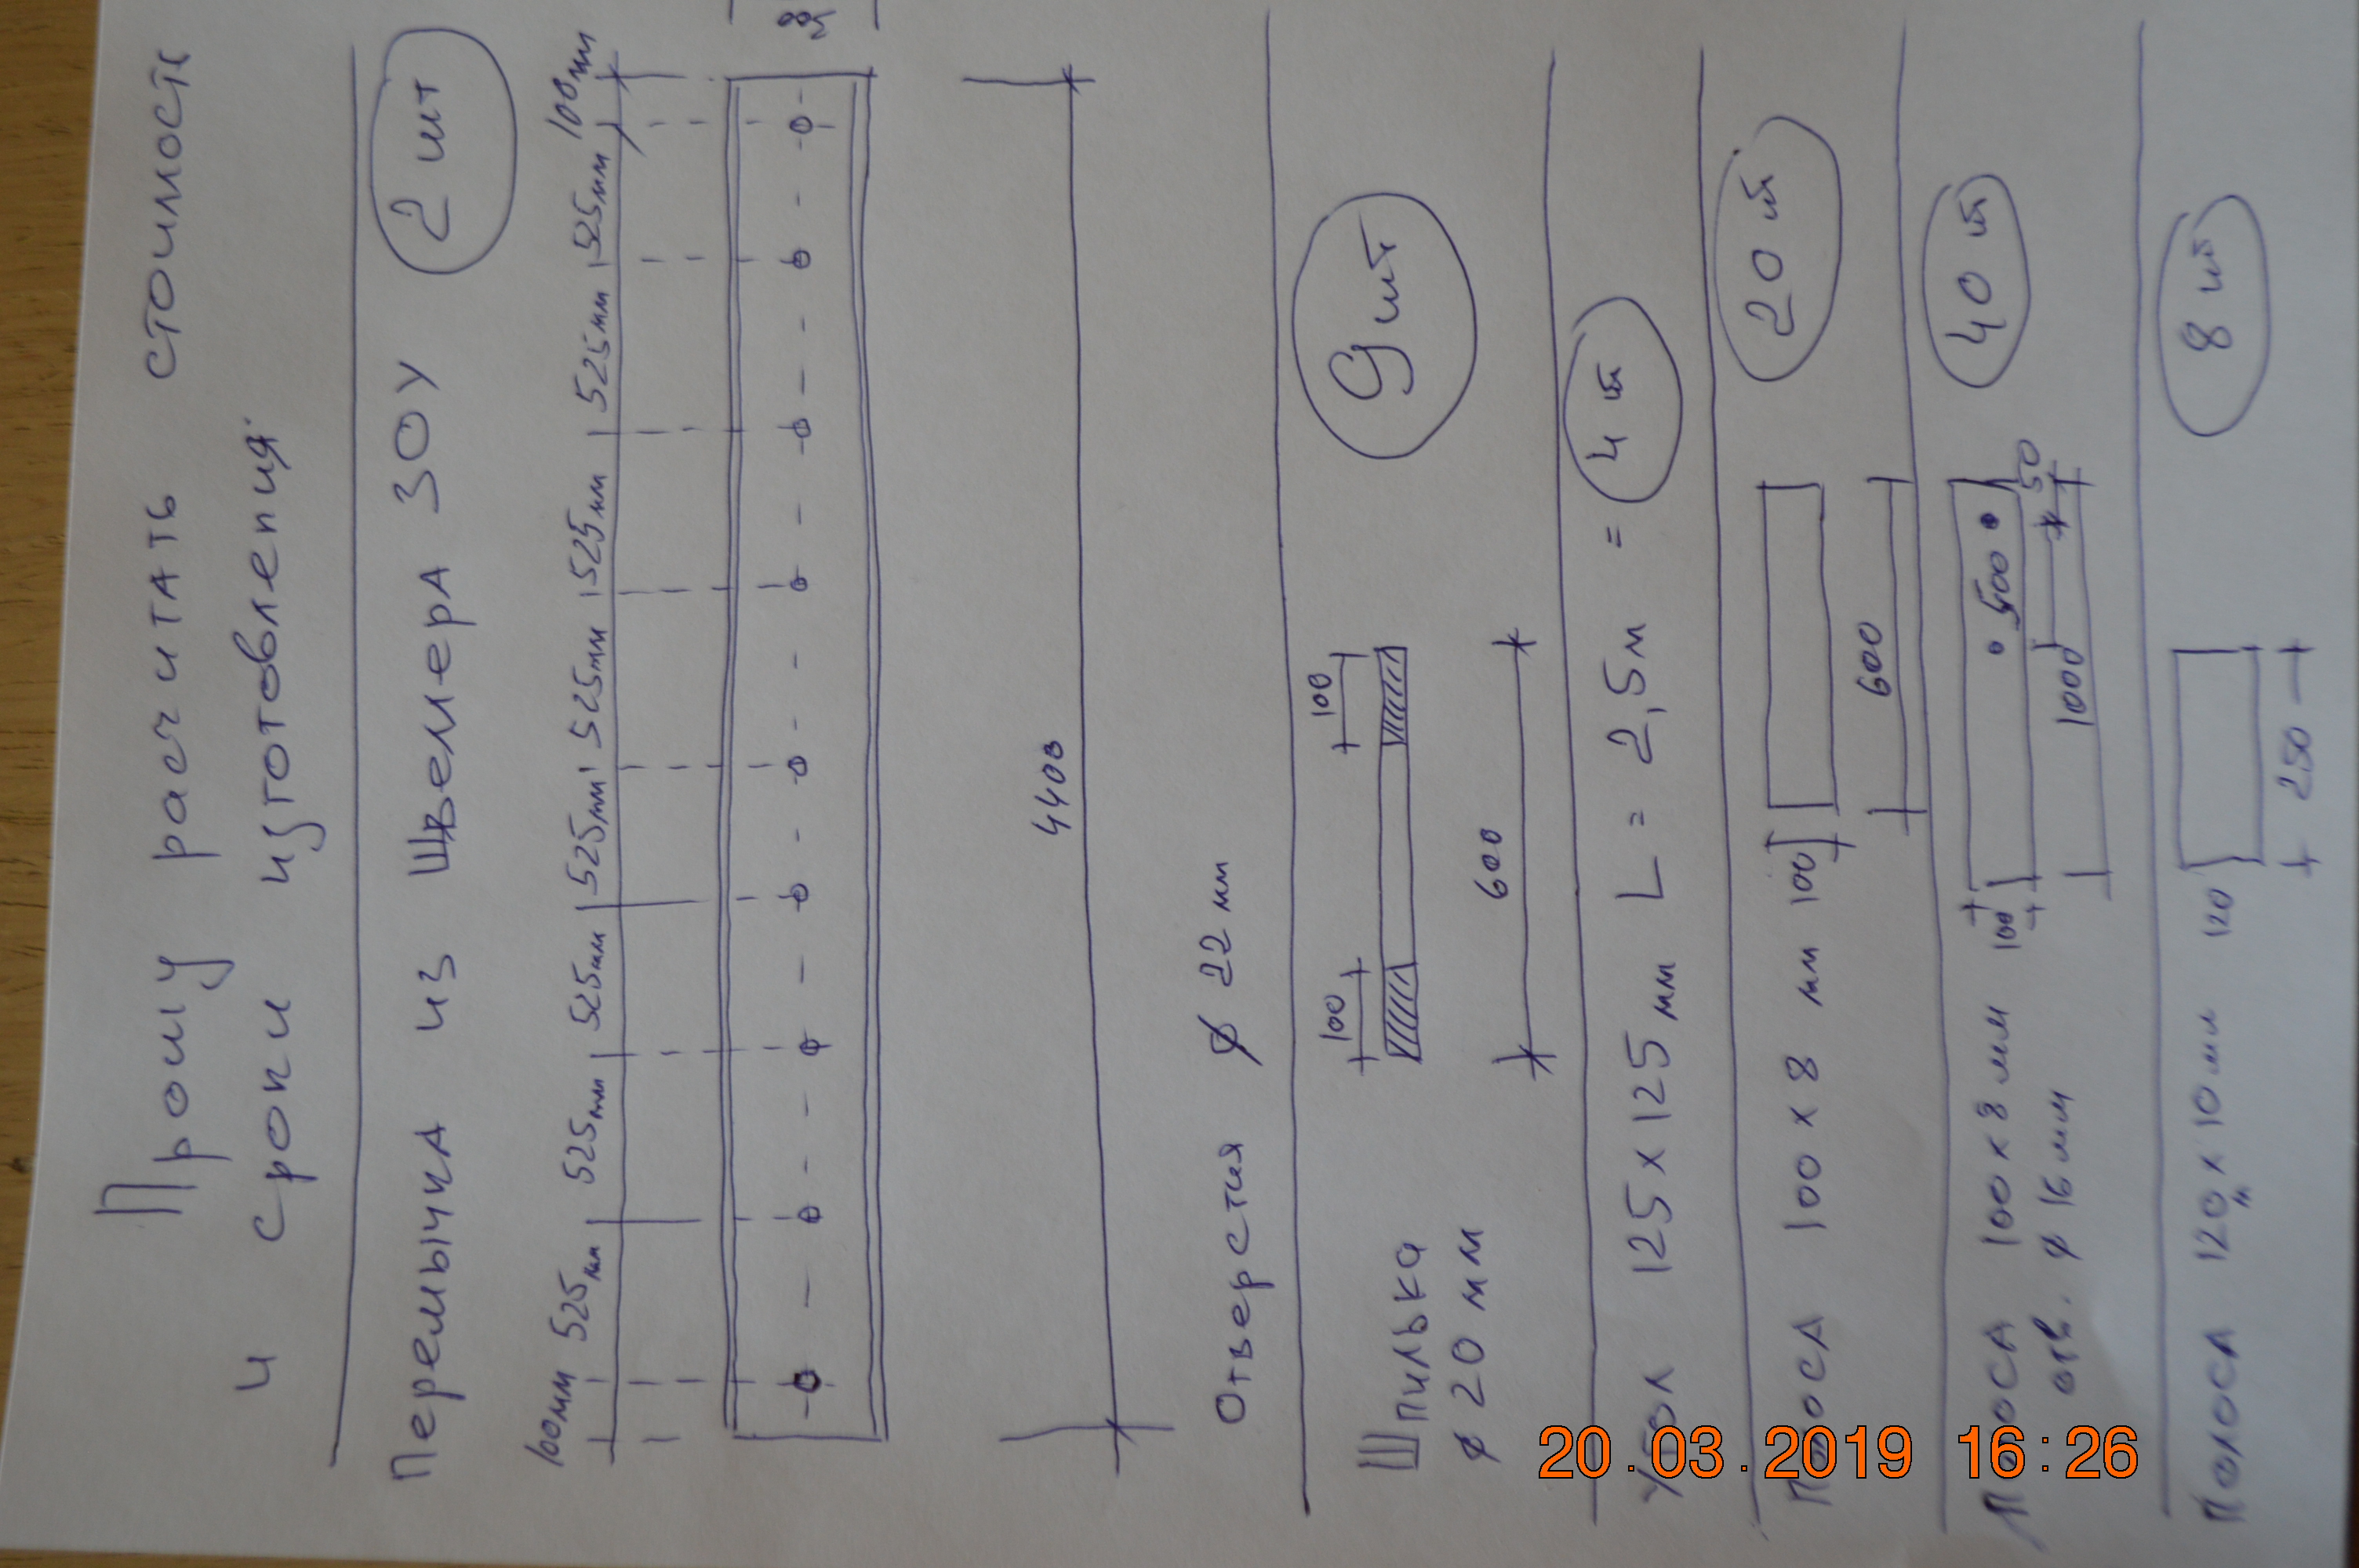 Прошу расчитать стоимость
и сроки изготовления:
Перемычка из Швеллера 30У 2 шт
100мм 525мм 525мм 525мм 525мм 525мм 525мм 525мм 525мм 100мм
4400
Отверстия ø 22 мм
Шпилька 100 100 9 шт
ø 20 мм 600
Угол 125 x 125 мм L = 2,5м = 4 шт
Полоса 100 x 8 мм 100 20 шт
600
Полоса 100 x 8 мм 100 500 50 40 шт
отв. ø 16 мм 1000
Полоса 120 x 10 мм 120 8 шт
250
20.03.2019 16:26